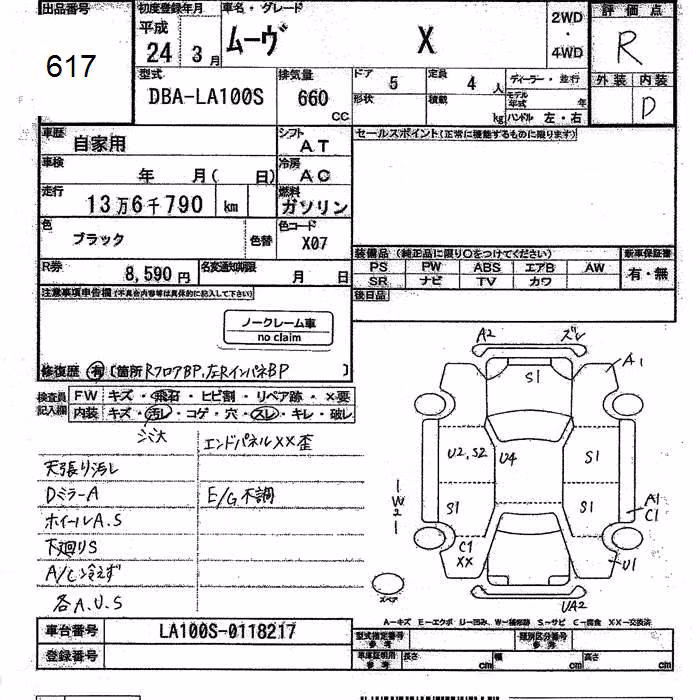 出品番号
617
初度登録年月
平成
24 3月
車名・グレード
ムーヴ X
2WD
・
4WD
評価点
R
外装 内装
D
型式
DBA-LA100S
排気量
660
CC
ドア 5
定員 4 人
形状
積載 kg
ディーラー・並行
モデル年式 年
ハンドル 左・右
車歴
自家用
シフト
AT
車検
年 月( 日)
冷房
AC
走行
13万6千790 km
燃料
ガソリン
色
ブラック
色替
色コード
X07
R券
8,590円
名変通知期限
月 日
セールスポイント(正常に機能するものに限ります)
装備品 (純正品に限り〇をつけてください)
PS PW ABS エアB AW
SR ナビ TV カワ
新車保証書
有・無
後日品
注意事項申告欄(不具合内容等は具体的に記入して下さい)
ノークレーム車
no claim
修復歴 有 [箇所 RフロアBP,左RインパネBP ]
検査員
記入欄
FW キズ・飛石・ヒビ割・リペア跡・×要
内装 キズ・汚レ・コゲ・穴・スレ・キレ・破レ
シミ大
エンドパネルXX歪
天張り汚レ
DミラーA
E/G不調
ホイールA.S
下廻りS
A/C冷えず
各A.U.S
A2 ズレ
A1
S1
U2,S2 U4 S1
W2
S1 S1
A1
C1
C1
XX
U1
UA2
スペア
A―キズ E―エクボ U―凹み W―補修跡 S―サビ C―腐食 XX―交換済
車台番号
LA100S-0118217
登録番号
型式指定番号
参考
類別区分番号
参考
車庫証明用
参考
長さ cm
幅 cm
高さ cm